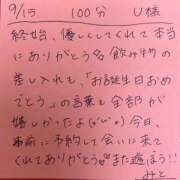 9/15 100分 U様
終始、優しくしてくれて本当
にありがとう 飲み物の
差し入れも、「お誕生日おめ
でとう」の言葉も全部が
嬉しかったよ(o'∪'o) 今日、
事前に予約して会いに来て
くれてありがとう♡また遊ぼう!!
みと